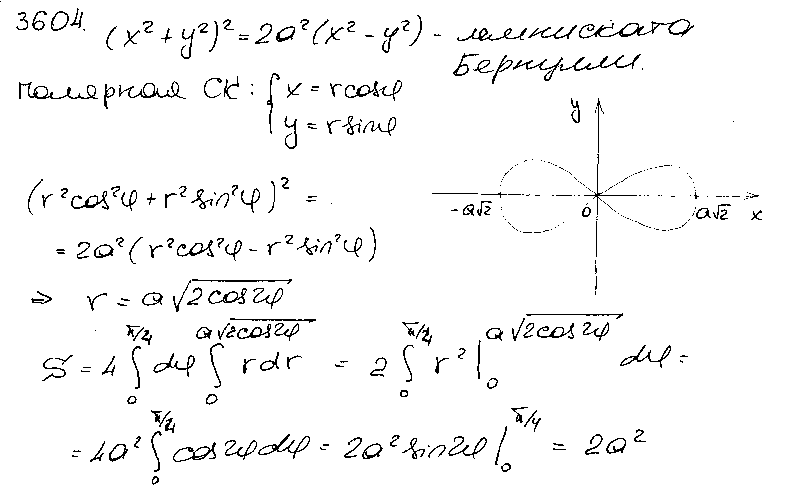 3604. (x² + y²)² = 2a²(x² - y²) - лемниската
Бернулли.
полярная СК: { x = r cosφ
y = r sinφ
y
-a√2 0 a√2 x
(r²cos²φ + r²sin²φ)² =
= 2a²(r²cos²φ - r²sin²φ)
⇒ r = a√(2cos2φ)
S = 4 ∫₀^(π/4) dφ ∫₀^(a√(2cos2φ)) r dr = 2 ∫₀^(π/4) r² |₀^(a√(2cos2φ)) dφ =
= 4a² ∫₀^(π/4) cos2φ dφ = 2a² sin2φ |₀^(π/4) = 2a²